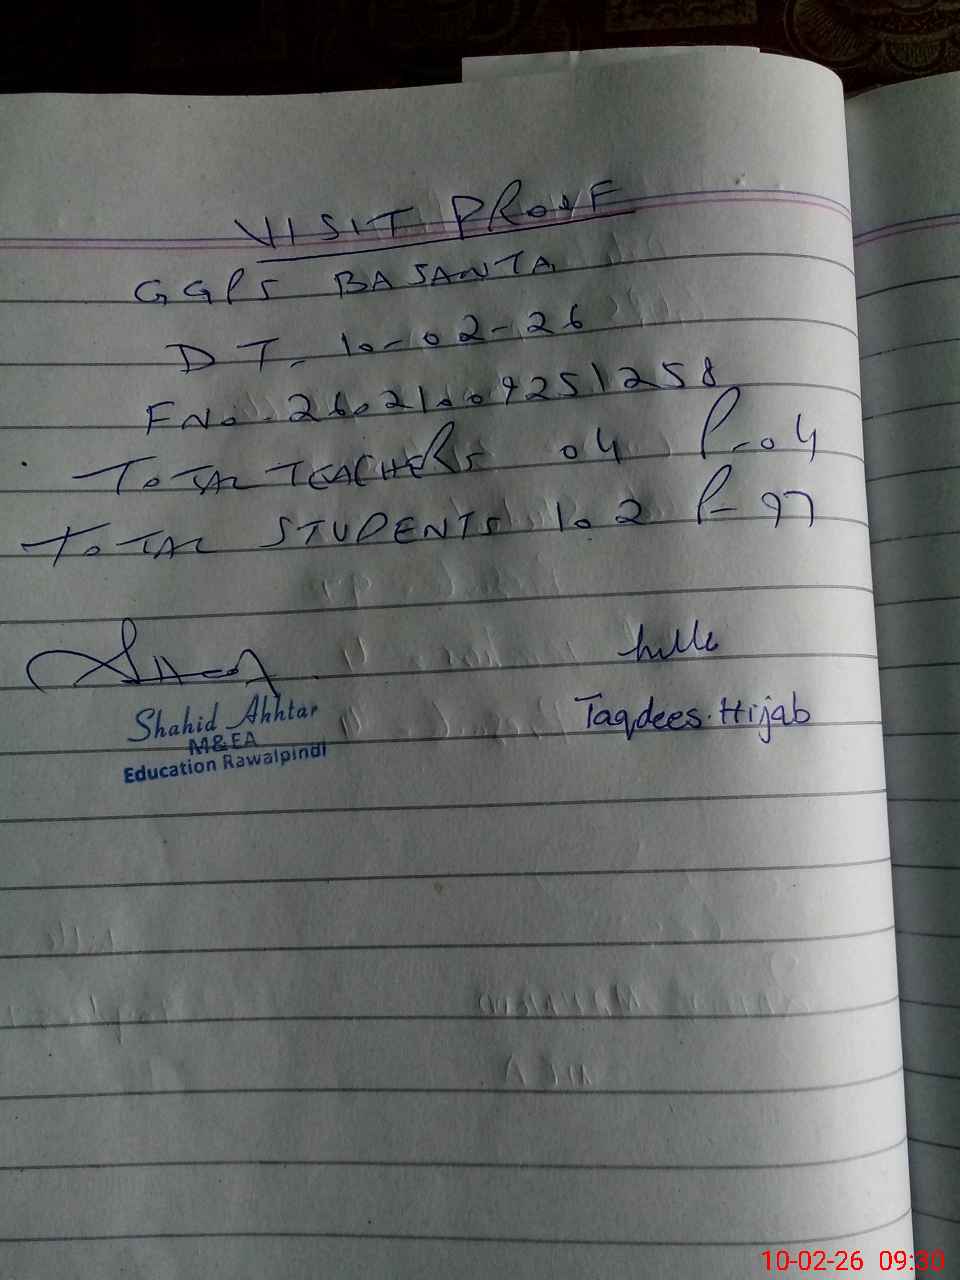 VISIT PROOF
GGPS BASANTA
DT. 10-02-26
FNo. 26021009251258
TOTAL TEACHERS 04 P-04
TOTAL STUDENTS 102 P-97
Shahid Akhtar
M&EA
Education Rawalpindi
Taqdees.Hijab
10-02-26 09:30